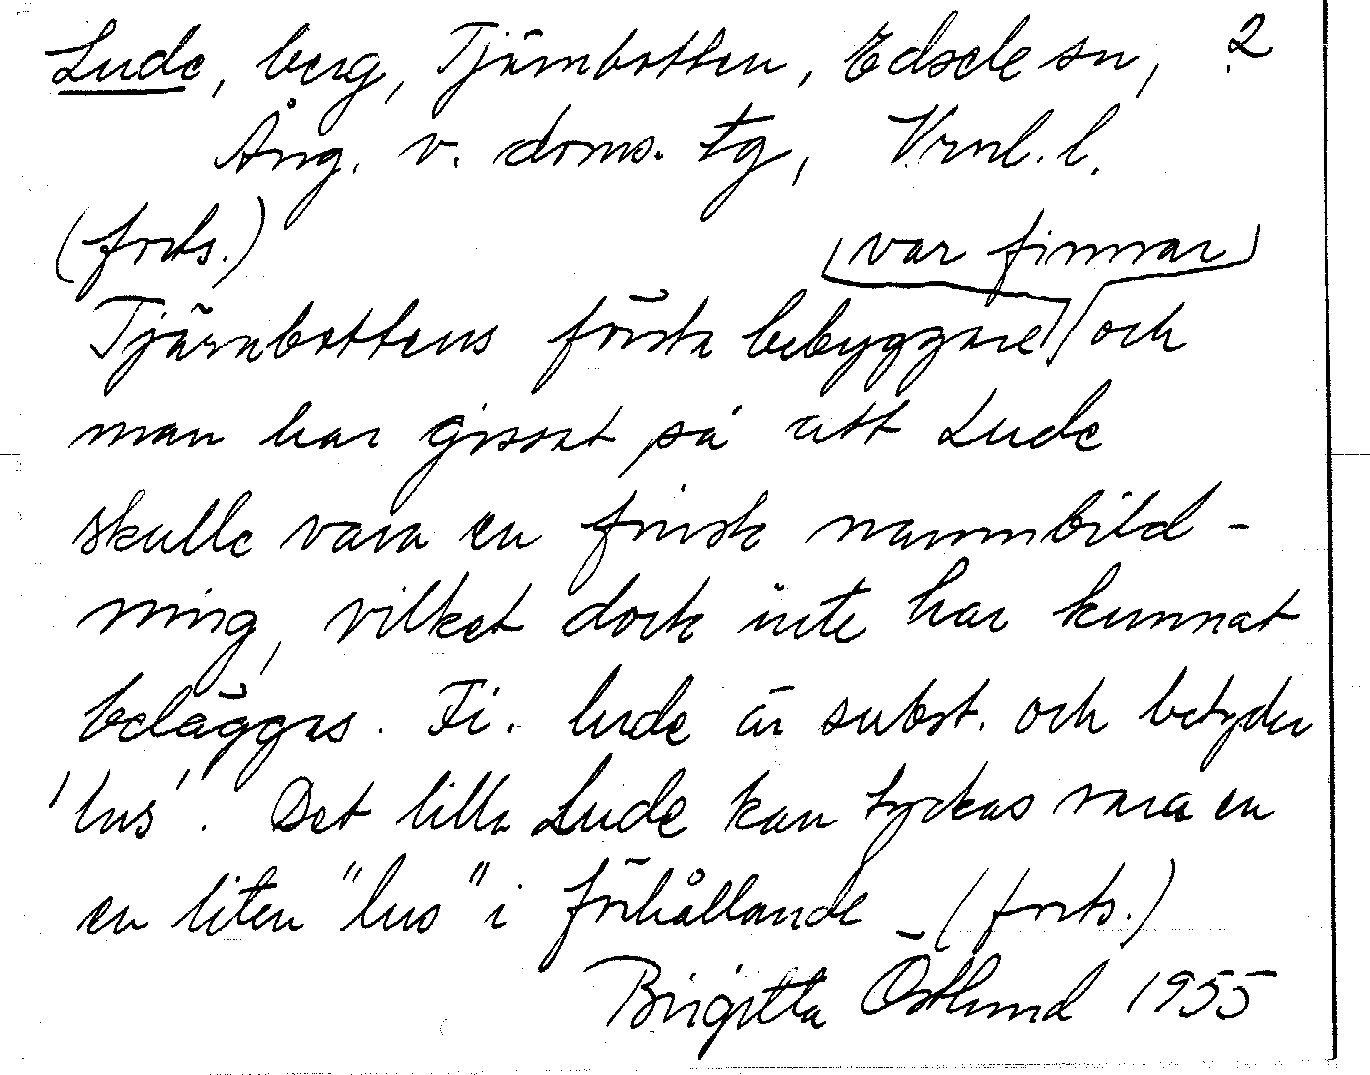 Lude, berg, Tjärnbotten, Edsele sn, 2
Ång. v. doms. tg, Vrnl. l.
(forts.) var finnar
Tjärnbottens första bebyggare och
man har gissat på att Lude
skulle vara en finsk namnbild-
ning, vilket dock inte har kunnat
beläggas. Fi. lude är subst. och betyder
'lus'. Det lilla Lude kan tyckas vara en
en liten "lus" i förhållande (forts.)
Birgitta Östlund 1955